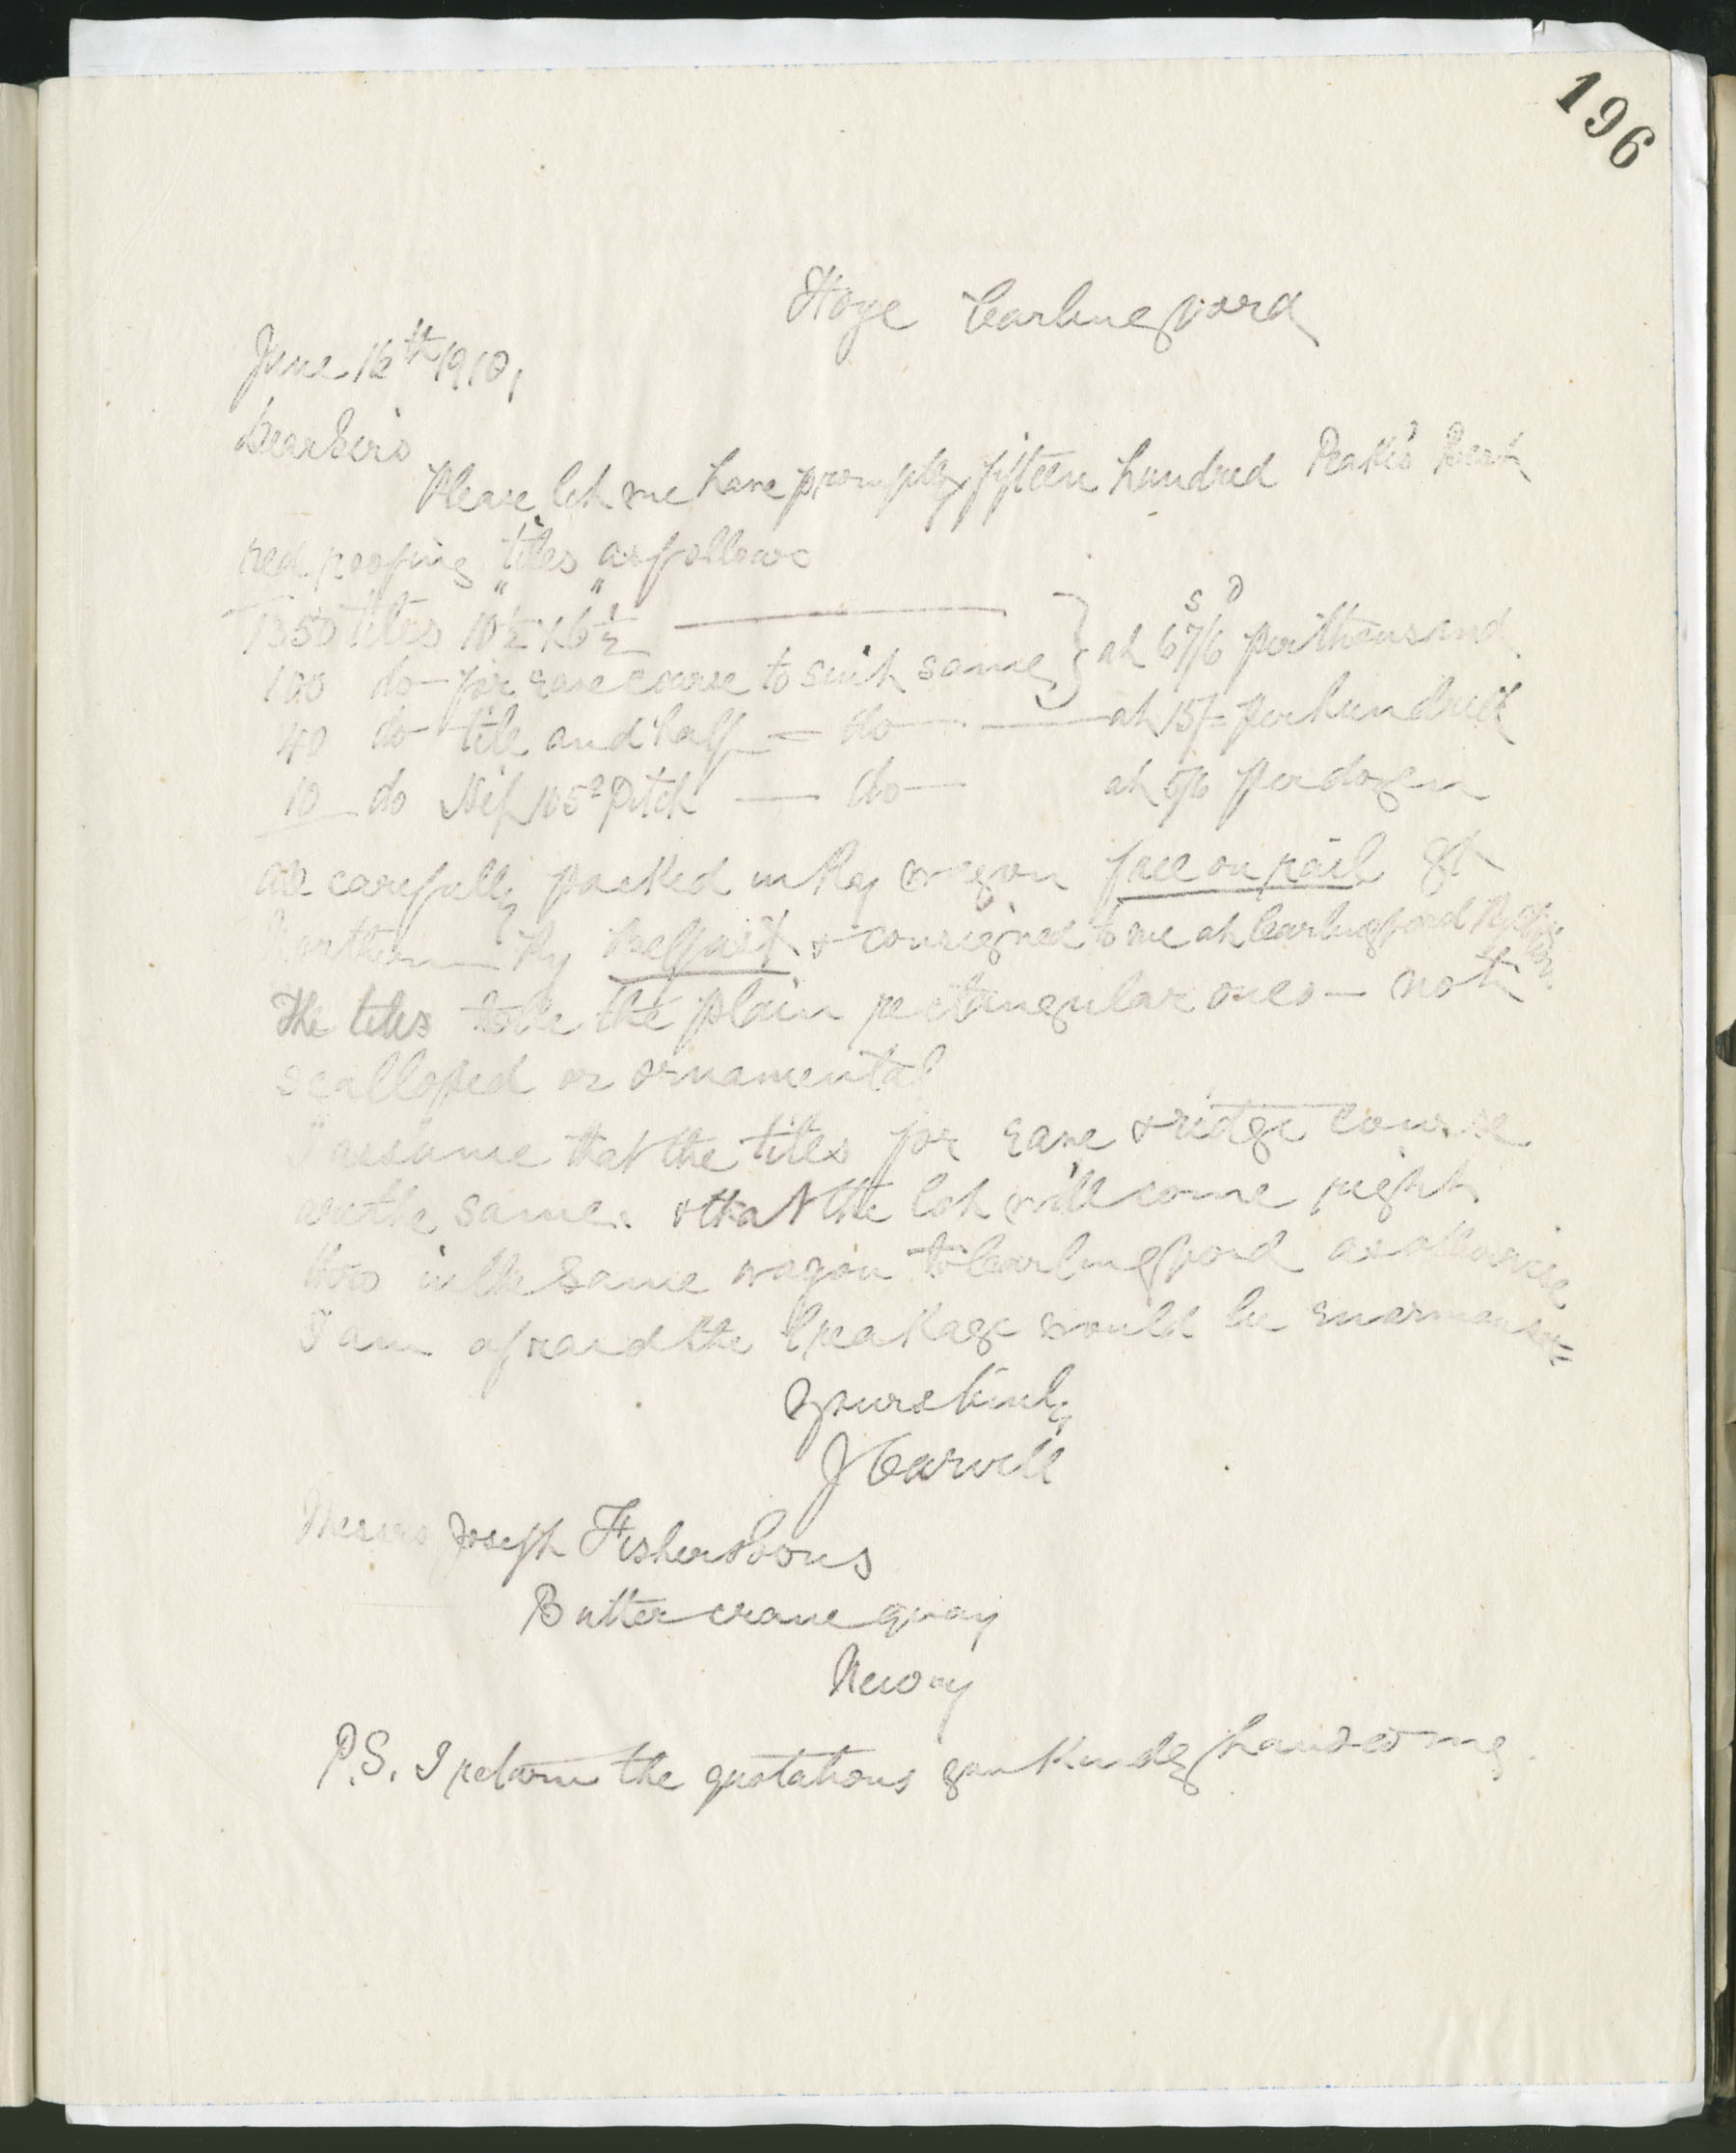 196
Hoye Carlingford
June 16th 1910,
Dear Sirs
Please let me have promptly fifteen hundred Peake's
red roofing tiles as follows
1350 tiles 10½" x 6½" at 67/6 per thousand
S D
100 do for eave course to suit same
40 do tile and half = do at 15/= per hundred
10 do Hip 105° Pitch do at 5/6 per dozen
all carefully packed in Ry wagon free on rail Gt
Northern Ry Belfast & consigned to me at Carlingford Ry Station.
The tiles to be the plain rectangular ones — not
scalloped or ornamental
I assume that the tiles for eave & ridge course
are the same. & that the lot will come right
thro in the same wagon to Carlingford as otherwise
I am afraid the breakage would be enormous =
Yours truly
J Carvill
Messrs Joseph Fisher & Sons
Buttercrane quay
Newry
P.S. I return the quotations you kindly handed me.